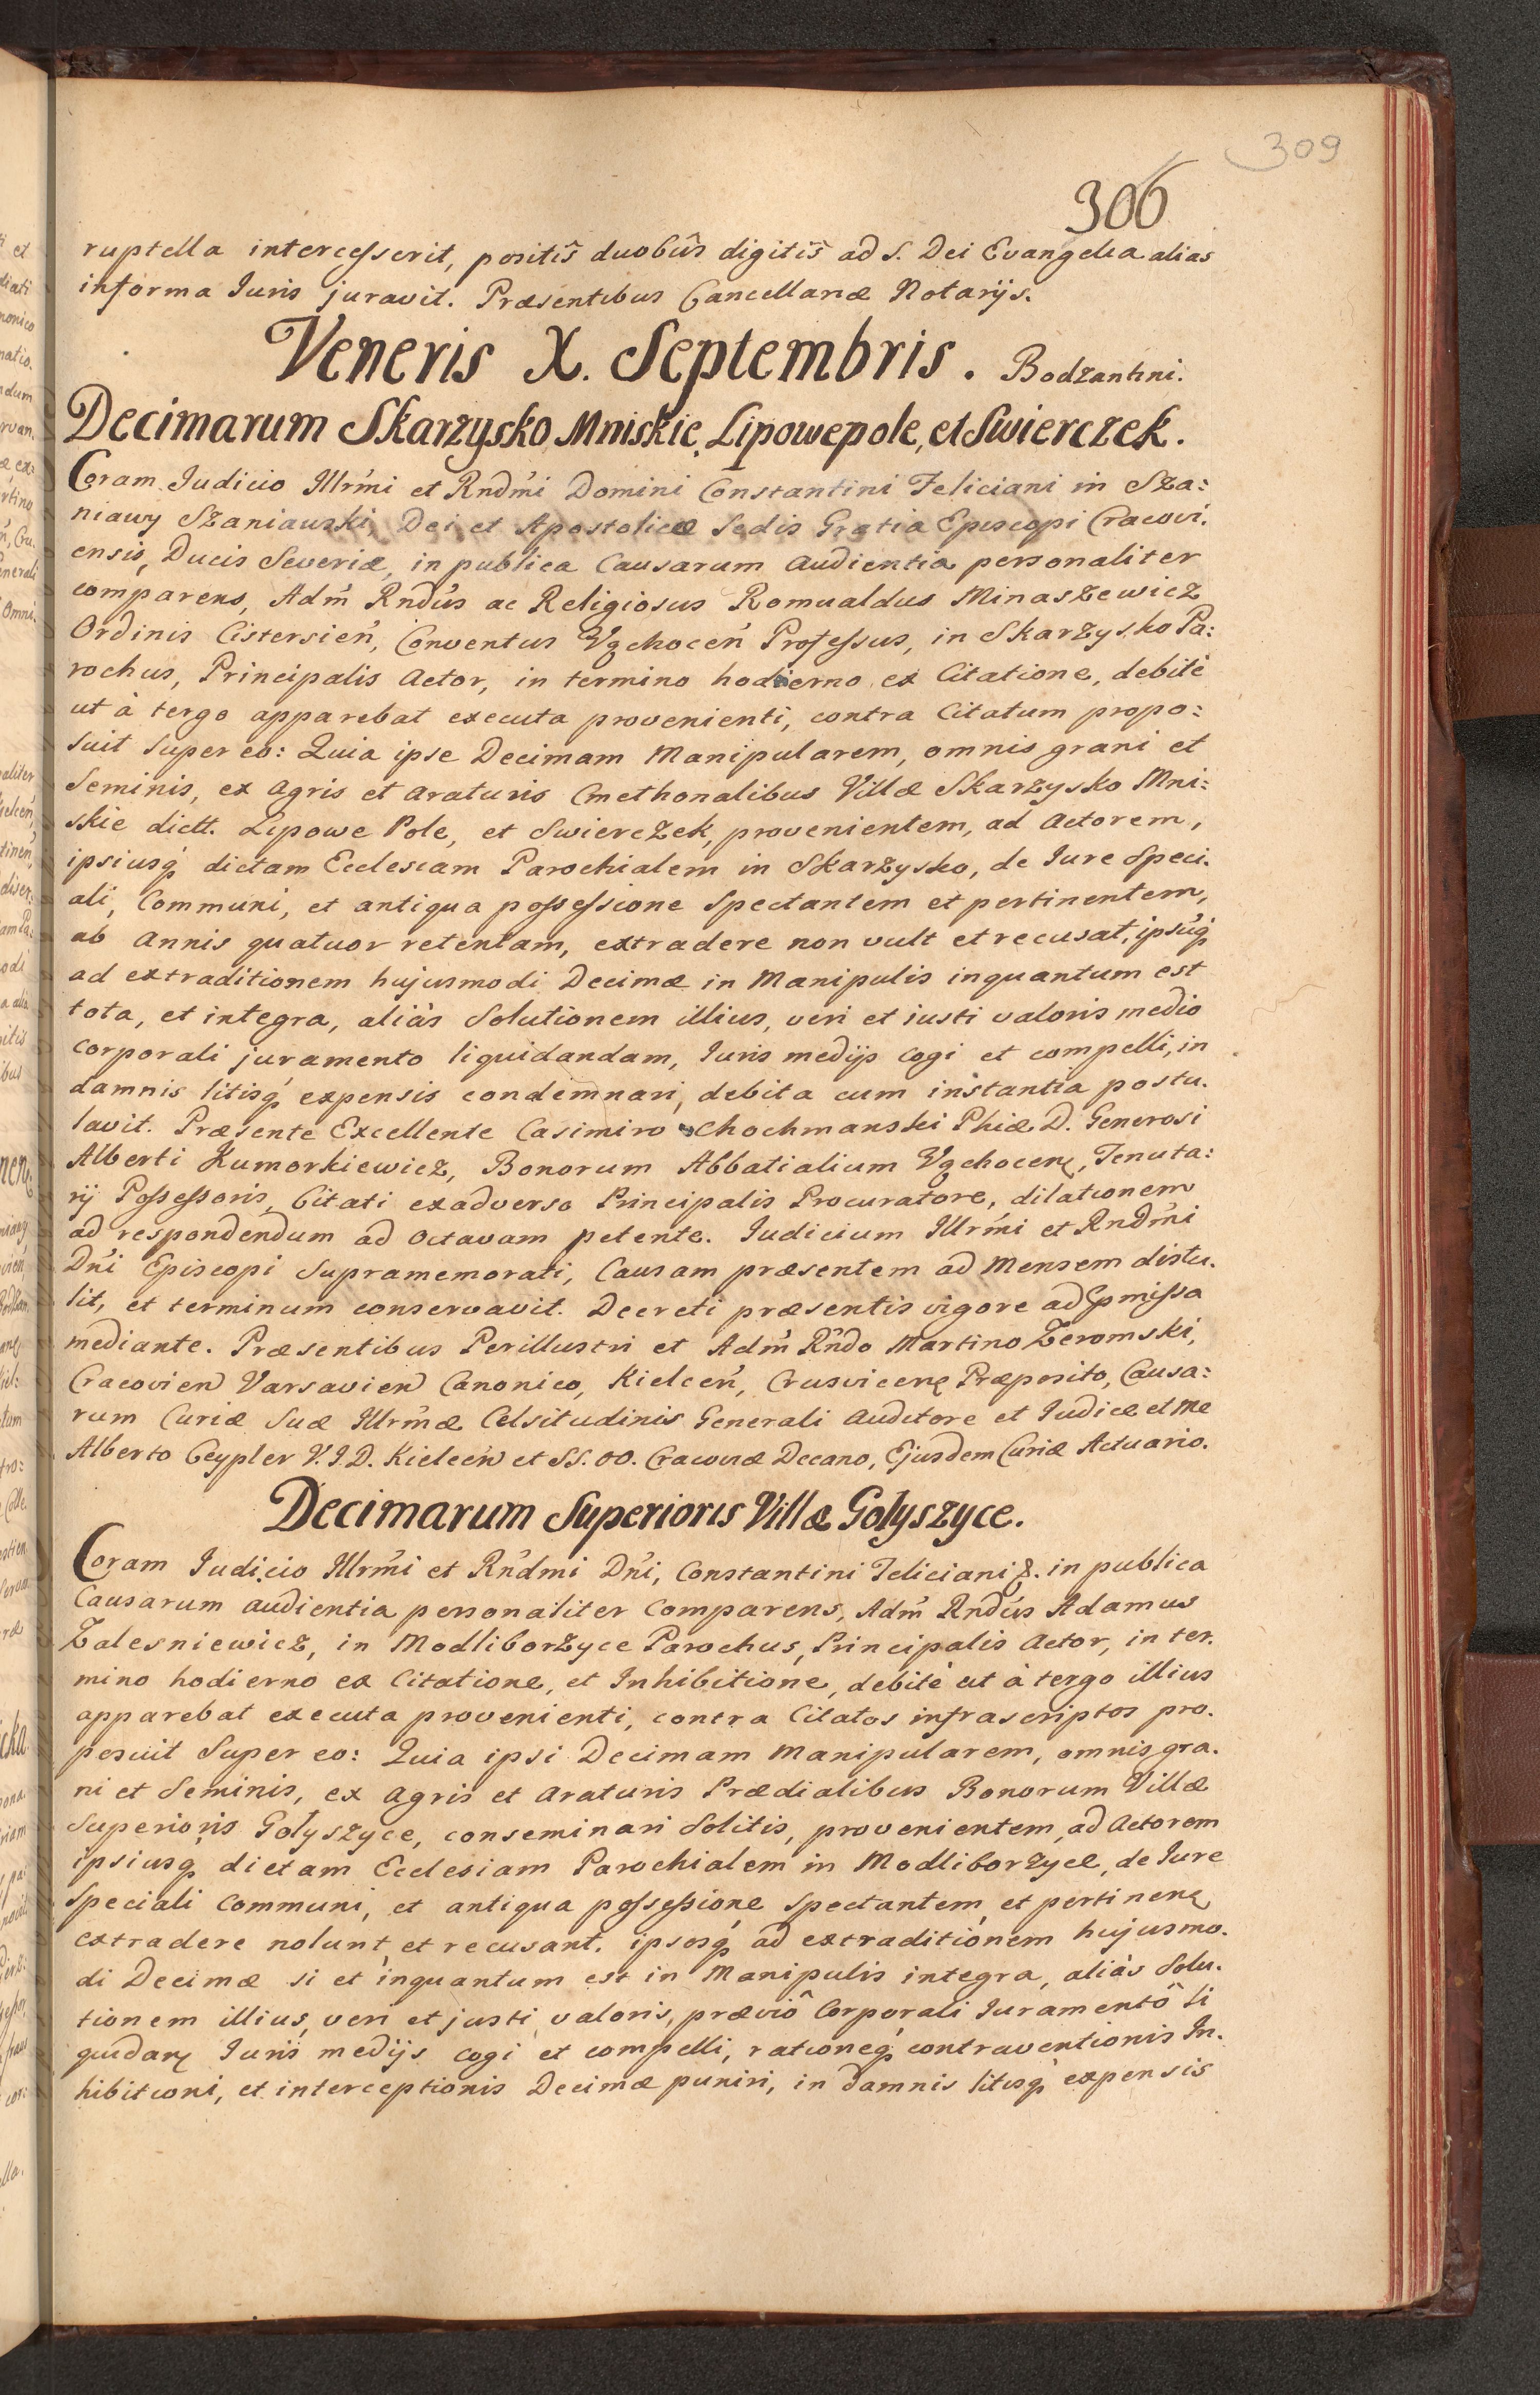 309
306
ruptella intercesserit, positis duobus digitis ad S. Dei Evangelia alias
informa Iuris juravit. Præsentibus Cancellariæ Notarijs.
Veneris X. Septembris. Bodzantini.
Decimarum Skarzysko Mniskie, Lipowepole, et Swierczek.
Coram Iudicio Illrmi et Rndmi Domini Constantini Feliciani in Sza:
niawy Szaniawski, Dei et Apostolicæ Sedis Gratia Episcopi Cracovi.
ensis, Ducis Severiæ, in publica Causarum audientia personaliter
comparens, Adm Rndus ac Religiosus Romualdus Minaszewicz
Ordinis Cistersien, Conventus Vąchocen Professus, in Skarzysko Pa:
rochus, Principalis Actor, in termino hodierno ex Citatione, debitè
ut à tergo apparebat executa provenienti, contra Citatum propo:
suit super eo: Quia ipse Decimam Manipularem, omnis grani et
Seminis, ex Agris et Araturis Cmethonalibus Villæ Skarzysko Mni:
skie dictt. Lipowe Pole, et Swierczek, provenientem, ad Actorem,
ipsiusq dictam Ecclesiam Parochialem in Skarzysko, de Iure Speci.
ali, Communi, et antiqua possessione Spectantem et pertinentem,
ab Annis quatuor retentam, extradere non vult et recusat, ipsuq
ad extraditionem hujusmodi Decimæ in Manipulis inquantum est
tota, et integra, aliàs Solutionem illius, veri et iusti valoris medio
corporali juramento liquidandam, Iuris medijs cogi et compelli, in
damnis litisq expensis condemnari, debita cum instantia postu.
lavit. Præsente Excellente Casimiro Chochmanski Phiæ D. Generosi
Alberti Kumorkiewicz, Bonorum Abbatialium Vąchocen, Tenuta:
rij Possessoris, Citati exadverso Principalis Procuratore, dilationem
ad respondendum ad Octavam petente. Iudicium Illrmi et Rndmi
Dni Episcopi Supramemorati, Causam præsentem ad Mensem distu.
lit, et terminum conservavit. Decreti præsentis vigore ad præmissa
mediante. Præsentibus Perillustri et Adm Rndo Martino Zeromski,
Cracovien Varsavien Canonico, Kielcen, Crusvicen Præposito, Causa:
rum Curiæ Suæ Illrmæ Celsitudinis Generali Auditore et Iudice et Me
Alberto Ceypler V.I.D. Kielcen et SS. OO. Cracoviæ Decano, Ejusdem Curiæ Actuario.
Decimarum Superioris Villæ Gołyszyce.
Coram Iudicio Illrmi et Rndmi Dni, Constantini Feliciani &. in publica
Causarum audientia personaliter Comparens, Adm Rndus Adamus
Zalesniewicz, in Modliborzyce Parochus, Principalis Actor, in ter.
mino hodierno ex Citatione, et Inhibitione, debitè ut à tergo illius
apparebat executa provenienti, contra Citatos infrascriptos pro.
posuit Super eo: Quia ipsi Decimam Manipularem, omnis gra.
ni et Seminis, ex Agris et Araturis Prædialibus Bonorum Villæ
Superioris Gołyszyce, conseminari Solitis, provenientem, ad Actorem
ipsiusq dictam Ecclesiam Parochialem in Modliborzyce, de Iure
Speciali Communi, et antiqua possessione Spectantem, et pertinen
extradere nolunt, et recusant. ipsosq ad extraditionem hujusmo.
di Decimæ si et inquantum est in Manipulis integra, aliàs Solu.
tionem illius, veri et justi valoris, præviô Corporali Iuramentô li
quidan Iuris medijs cogi et compelli, rationeq contraventionis In.
hibitioni, et interceptionis Decimæ puniri, in damnis litisq expensis